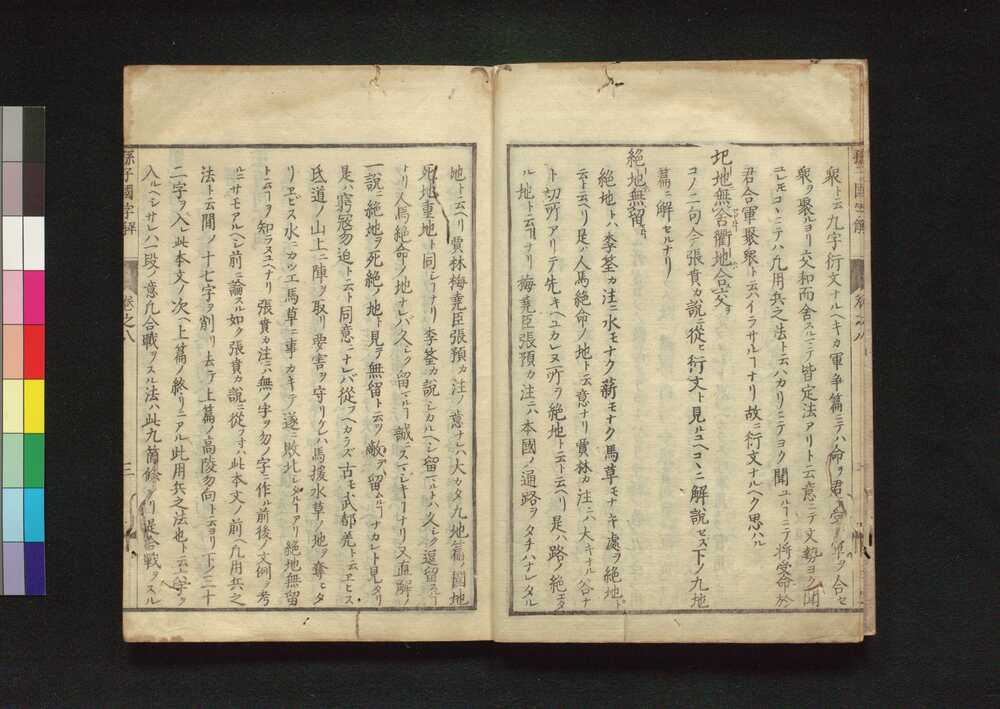 衆ト云九字衍文ナルヘキカ軍争篇ニテハ命ヲ君ニ受ケ軍ヲ合セ
衆ヲ聚ルヨリ交和而舎スルニテ皆定法アリト云意ニテ文勢ヨク聞
ユレモコヽニテハ凡用兵之法ト云ハカリニテヨク聞ユルヿニテ将受命於
君合軍聚衆ト云ハイラサルヿナリ故ニ衍文ナルヘク思ハル
圮地無舎衢地合交
コノ二句今張賁カ説ニ従ヒ衍文ト見ルユヘコヽニ解説セス下ノ九地
篇ニ解セルナリ
絶地無留
絶地トハ李筌カ注ニ水モナク薪モナク馬草モナキ處ヲ絶地ト
云ト云リ是ハ人馬絶命ノ地ト云意ナリ賈林カ注ニハ大キナル谷ナ
ト切所アリテ先キヘユカレヌ所ヲ絶地ト云ト云ヘリ是ハ路ノ絶エタ
ル地ト云ヿナリ梅堯臣張預カ注ニハ本國ノ通路ヲタチハナレタル
地ト云ヘリ賈林梅堯臣張預カ注ノ意ナレハ大カタ九地篇ノ圍地
死地重地ト同シヿナリ李筌カ説シカルヘシ留マルトハ久シク逗留スル
ナリ人馬絶命ノ地ナレバ久シク留マルハ誠ニスマシキヿナリ又直解ノ
一説ニ絶地ヲ死絶ノ地ト見テ無留ト云ヲ敵ヲ留ムルヿナカレト見タリ
是ハ窮寇勿迫ト云ト同意ニナレバ從フヘカラズ古モ武都羌ト云ヱヒス
氐道ノ山上ニ陣ヲ取リ要害ヲ守リタレハ馬援水草ノ地ヲ奪ヒタ
リヱビス水ニカツエ馬草ニ事カキテ遂ニ敗北シタルヿアリ絶地無留
トニヿヲ知ラスユヘナリ張賁カ注ニハ無ノ字ヲ勿ノ字ニ作ル前後ノ文例ヲ考
ルニサモアルヘシ前ニ論スル如ク張賁カ説ニ従フ寸ハ此本文ノ前ヘ凡用兵之
法ト云間ノ十七字ヲ削リ去テ上篇ノ高陵勿向ト云ヨリ下ノ三十
二字ヲ入レ此本文ノ次ヘ上篇ノ終リニアル此用兵之法也ト云六字ヲ
入ルヘシサレハ一段ノ意凡合戰ヲスル法ハ此九箇條ナリ是合戰ヲスル
孫子國字解
卷之八
三